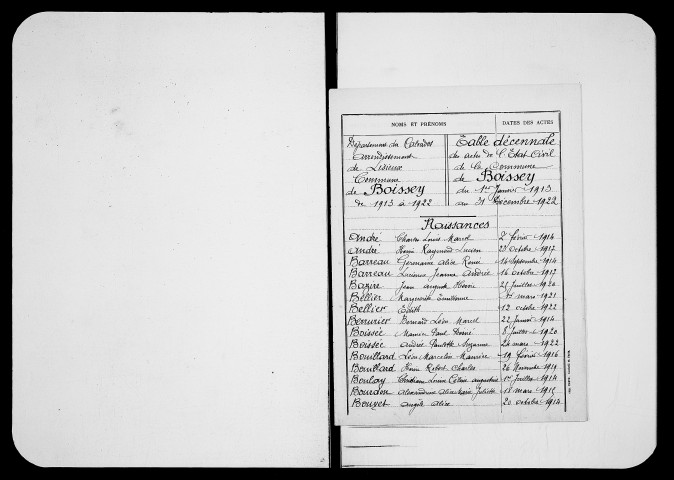 NOMS ET PRÉNOMS
DATES DES ACTES
Département du Calvados
arrondissement
de Lisieux
Commune
de Boissey
de 1913 à 1922
Table décennale
des actes de l'Etat Civil
de la Commune
de Boissey
du 1er Janvier 1913
au 31 Décembre 1922
Naissances
André Charles Louis Marcel 2 février 1914
André Henri Raymond Lucien 23 octobre 1917
Barreau Germaine Alice Renée 14 Septembre 1914
Barreau Lucienne Jeanne Andrée 16 octobre 1917
Bazire Jean auguste 21 Juillet 1920
Bellier Marguerite mars 1921
Bellier Edith 12 octobre 1922
Bernard Léon Marcel 22 Janvier 1914
Boissée Maurice Paul 8 Juillet 1920
Boissée Andrée Paulette Suzanne 24 mars 1922
Bouillard Léon Marcelin Maurice 19 février 1916
Bouillard Henri Robert Charles 26 Novembre 1919
Boulay Louise augustine 1er Juillet 1914
Bourdon alexandrine alice Marie Juliette 18 mars
Bouvet angèle alice 20 octobre 1914